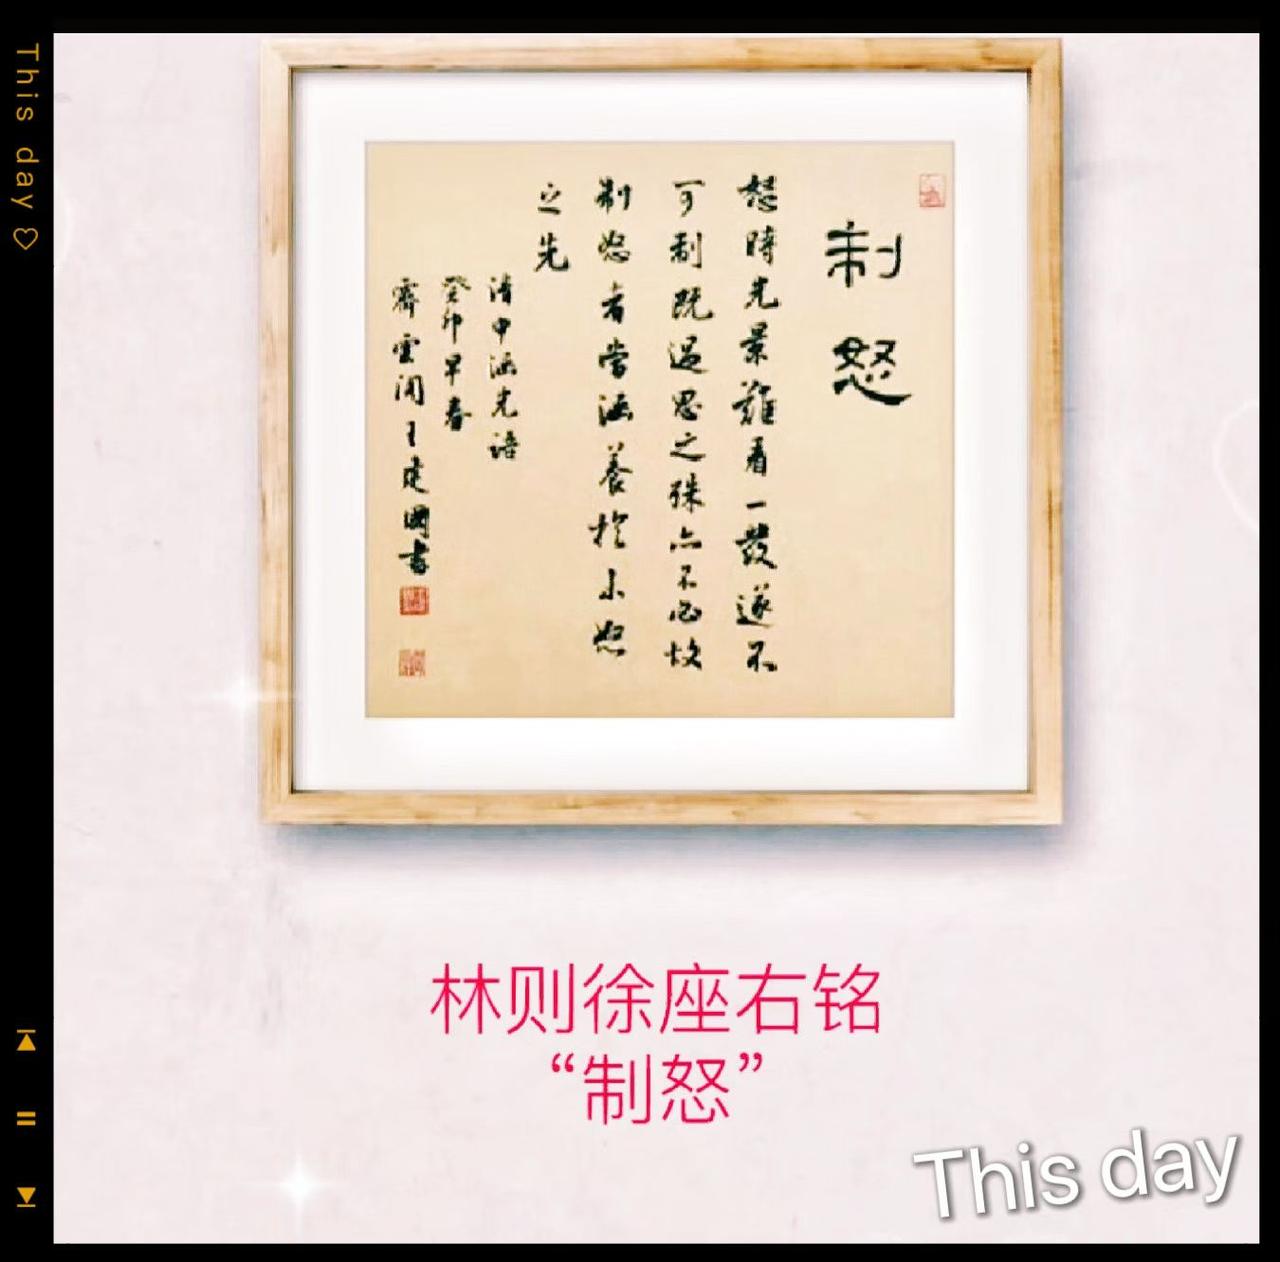 This day♡
制怒
怒時光景難看一發遂不
可制既過思之殊亦不必故
制怒者當涵養於未怒
之先
清申涵光語
癸卯早春
齊雲閣王建國書
林则徐座右铭
“制怒”
This day